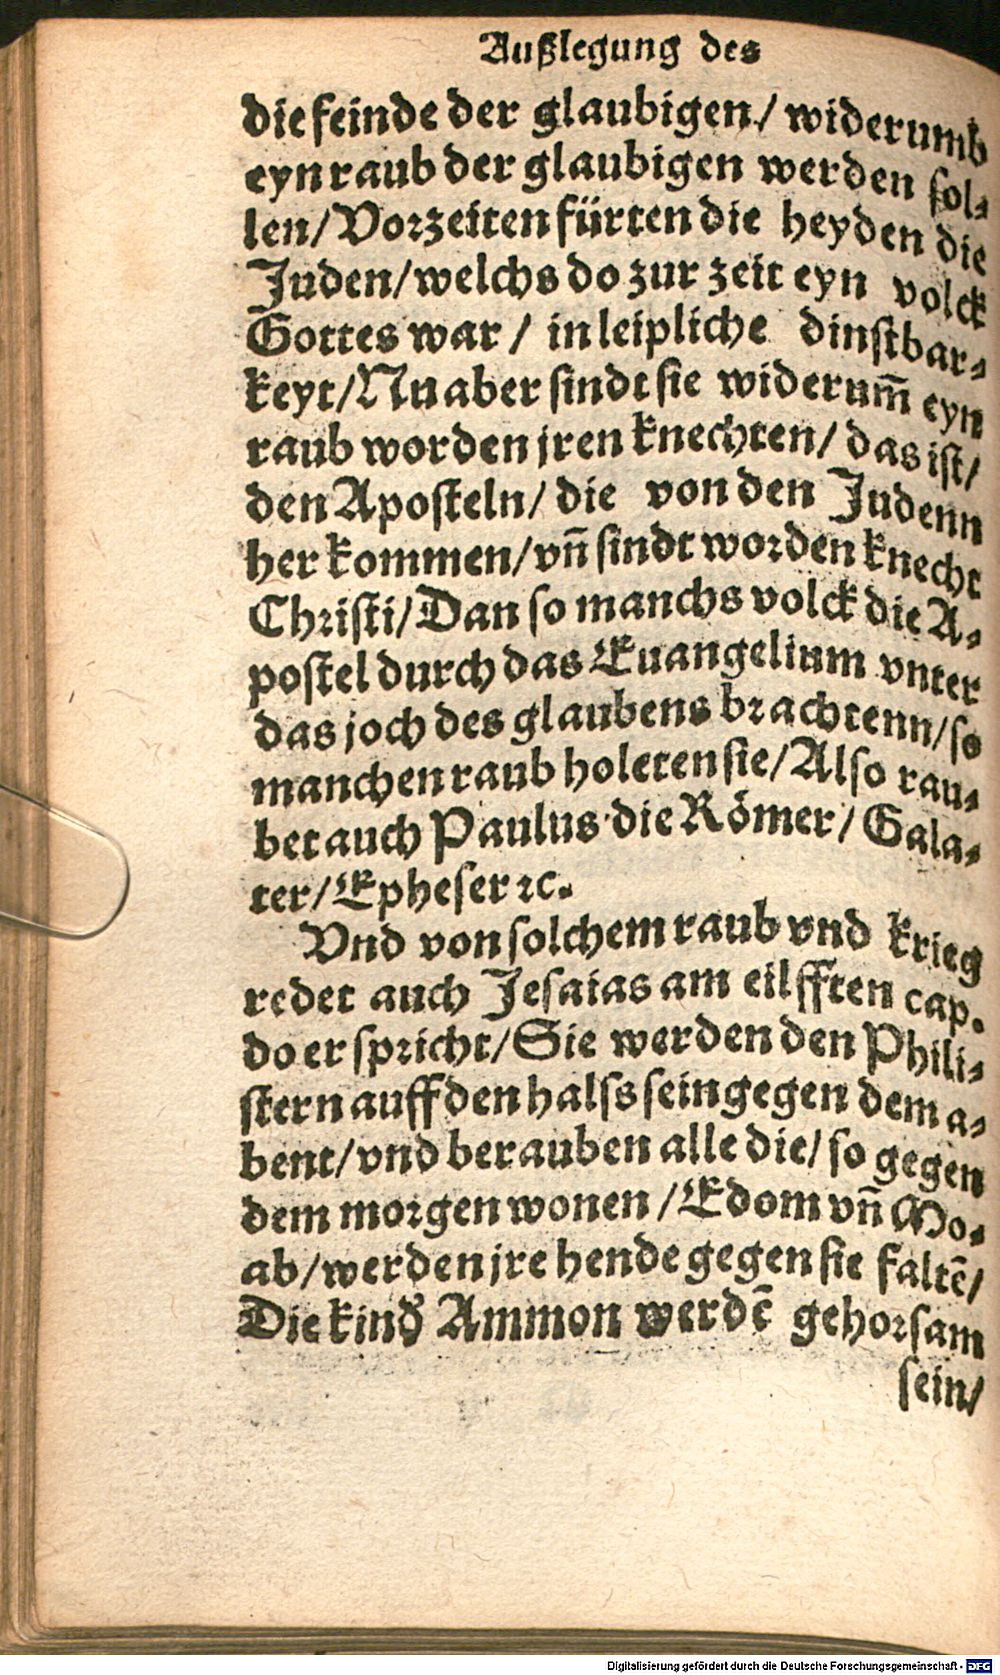 Außlegung des
die feinde der glaubigen / widerumb
eyn raub der glaubigen werden sol⸗
len / Vorzeiten fürten die heyden die
Juden / welchs do zur zeit eyn volck
Gottes war / in leipliche dinstbar⸗
keyt / Nu aber sindt sie widerum̃ eyn
raub worden jren knechten / das ist /
den Aposteln / die von den Judenn
her kommen / vn̄ sindt worden knecht
Christi / Dan so manchs volck die A⸗
postel durch das Euangelium vnter
das joch des glaubens brachtenn / so
manchen raub holeten sie / Also rau⸗
bet auch Paulus die Römer / Gala⸗
ter / Epheser ꝛc.
Vnd von solchem raub vnd krieg
redet auch Jesaias am eilfften cap.
do er spricht / Sie werden den Phili⸗
stern auff den halss sein gegen dem a⸗
bent / vnd berauben alle die / so gegen
dem morgen wonen / Edom vn̄ Mo⸗
ab / werden jre hende gegen sie faltē /
Die kind' Ammon werdē gehorsam
sein /
Digitalisierung gefördert durch die Deutsche Forschungsgemeinschaft - DFG